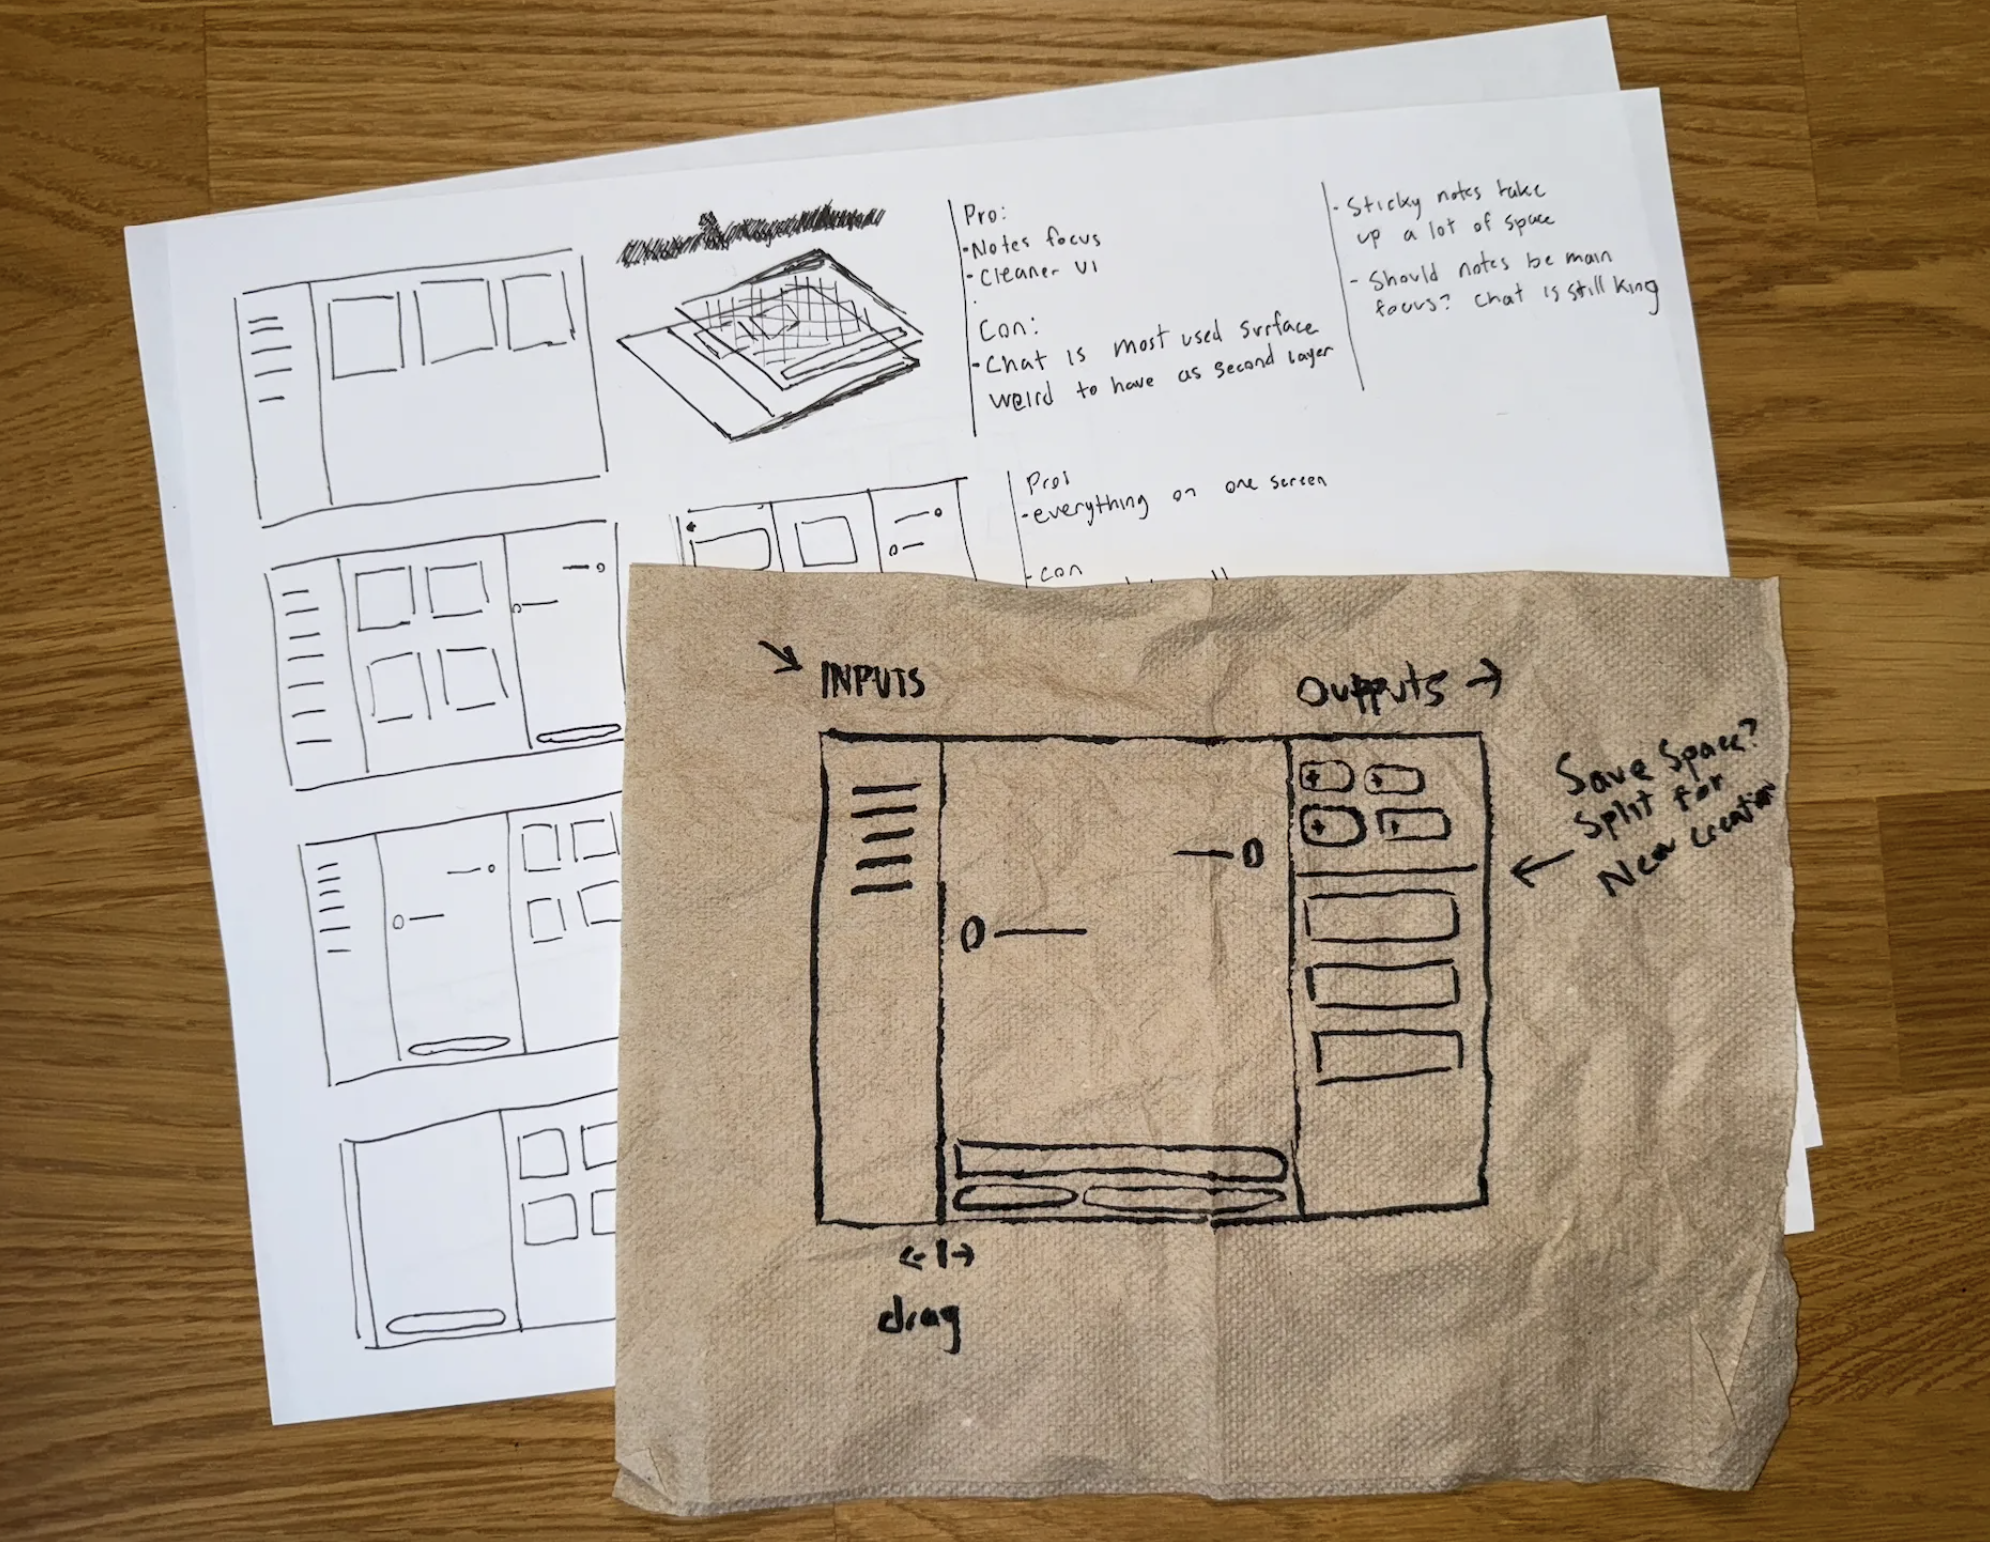 Pro:
• Notes focus
- Cleaner UI
Con:
• Chat is most used surface
weird to have as second layer
• Sticky notes take
up a lot of space
- Should notes be main
focus? Chat is still king
Pro:
• everything on one screen
- con
INPUTS
Outputs →
Save Space?
Split for
New creation
← I →
drag